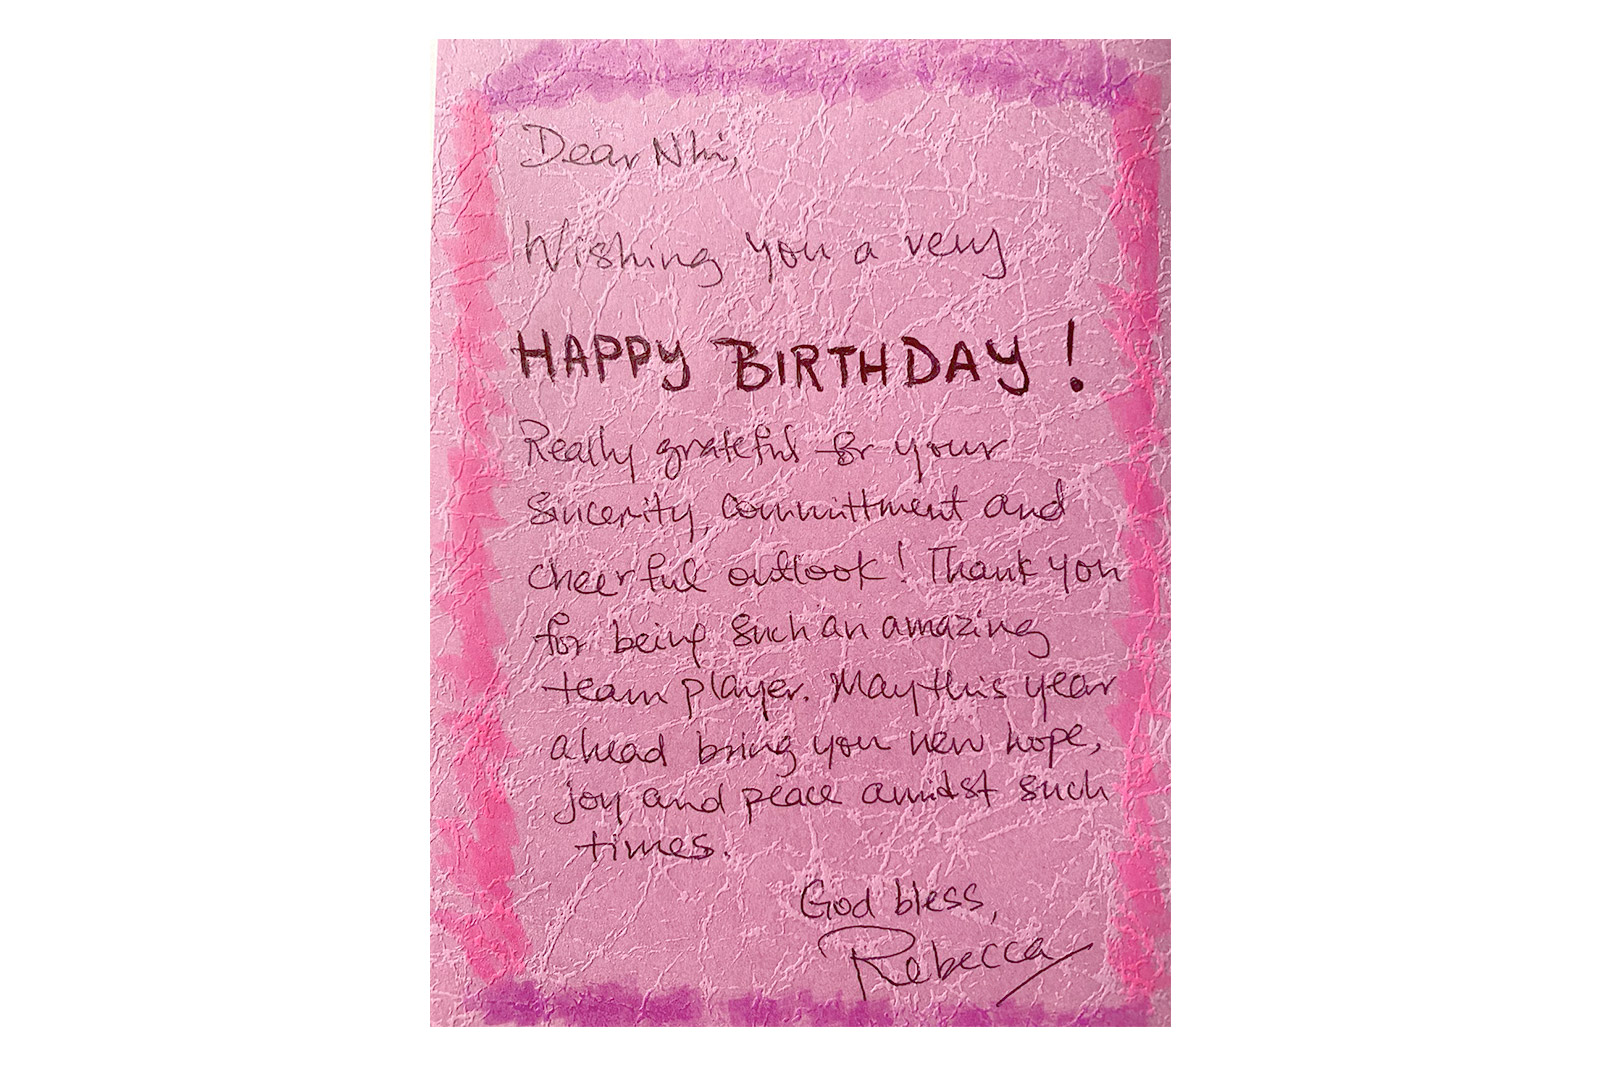 Dear Nhi,
Wishing you a very
HAPPY BIRTHDAY!
Really grateful for your
sincerity, committment and
cheerful outlook! Thank you
for being such an amazing
team player. May this year
ahead bring you new hope,
joy and peace amidst such
times.
God bless,
Rebecca